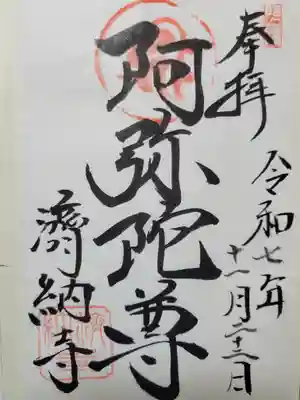 奉拝
令和七年
十一月二十三日
阿弥陀尊
済納寺